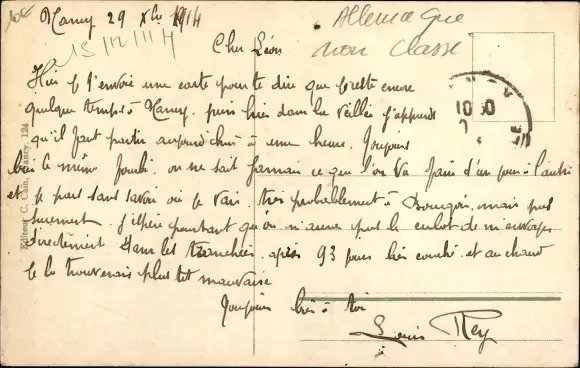 10€
Nancy 29 Xbre 1914
15/12/114
Allemagne
non classe
Cher Léon
Hier je t'envoie une carte pour te dire que je reste encore
quelque temps à Nancy, puis hier dans la veillée j'apprends
qu'il faut partir aujourd'hui à une heure. Toujours
bien le même fourbi. on ne sait jamais ce que l'on va faire d'un jour à l'autre
et je part sans savoir où je vais. très probablement à mais pas
surement. J'espère pourtant qu'on n'aura pas le culot de m'envoyer
directement dans les tranchées. après 93 jours bien couché et au chaud
je la trouverais plus tôt mauvaise
Toujours bien à toi
Louis Rey
Editeur C. Nancy, 124